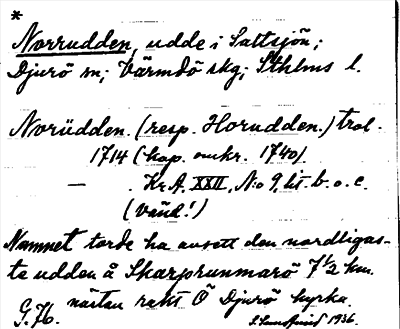 *
Norrudden, udde i Saltsjön;
Djurö sn; Värmdö skg; Sthlms l.
Norüdden. (resp. Horudden.) trol.
1714 (kop. omkr. 1740).
— . Kr.A. XXII, N:o 9, lit. b. o. c.
(Vänd!)
Namnet torde ha avsett den nordligas-
te udden å Skarprunmarö 7 1/2 km.
nästan rakt Ö Djurö kyrka.
G.76. 1936.